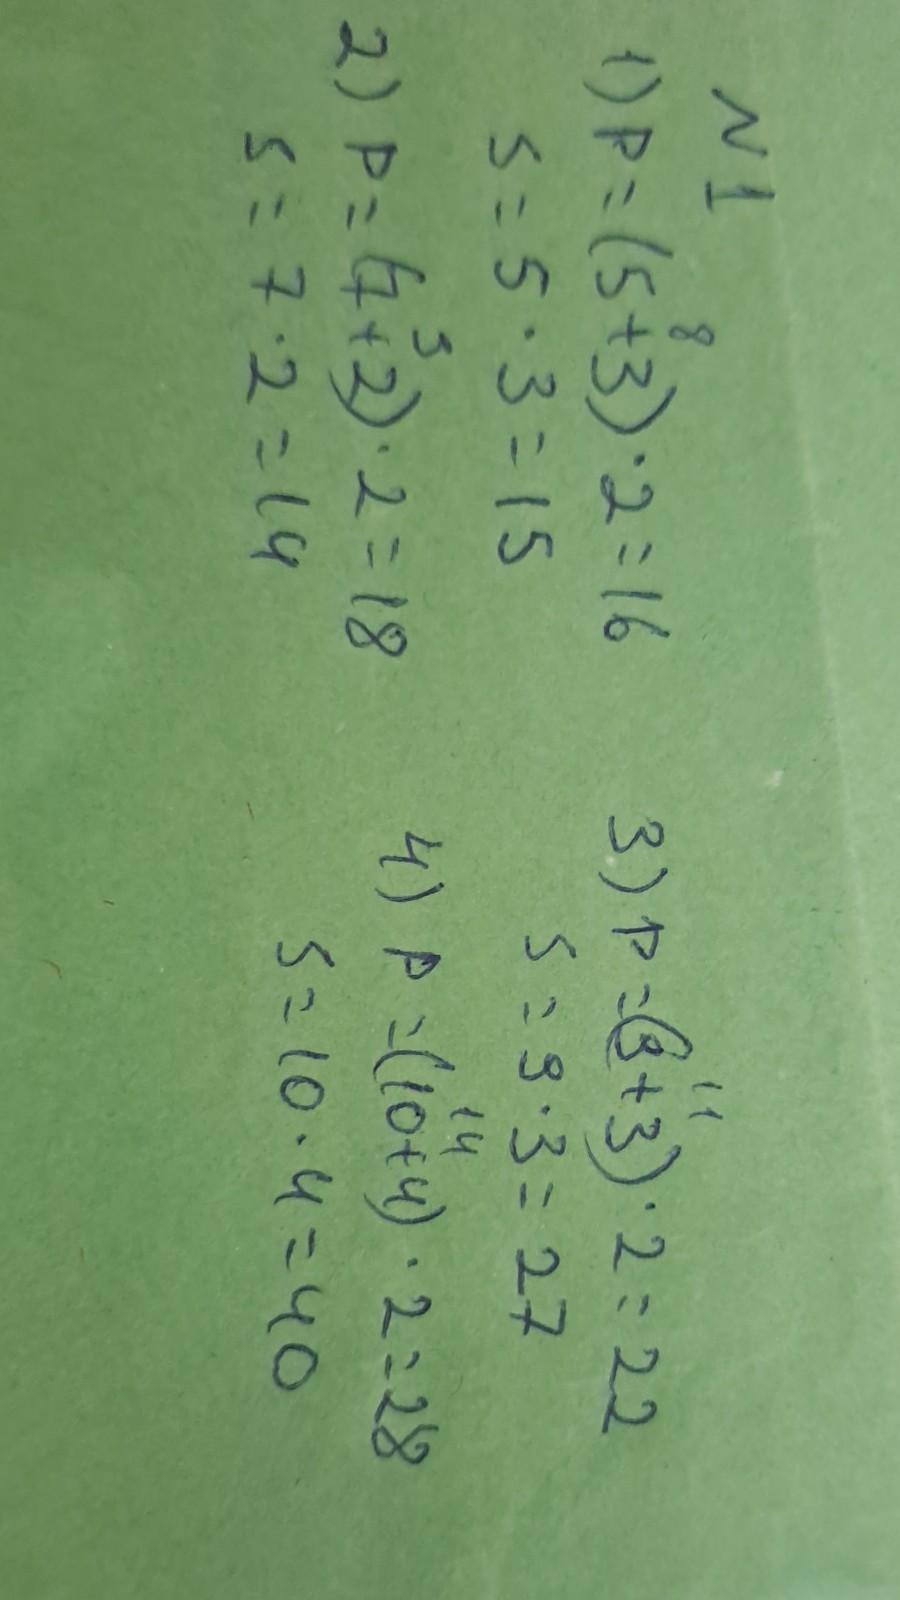 N 1
8
1) P = (5+3) · 2 = 16
S = 5 · 3 = 15
9
2) P = (7+2) · 2 = 18
S = 7 · 2 = 14
11
3) P = (8+3) · 2 = 22
S = 9 · 3 = 27
14
4) P = (10+4) · 2 = 28
S = 10 · 4 = 40